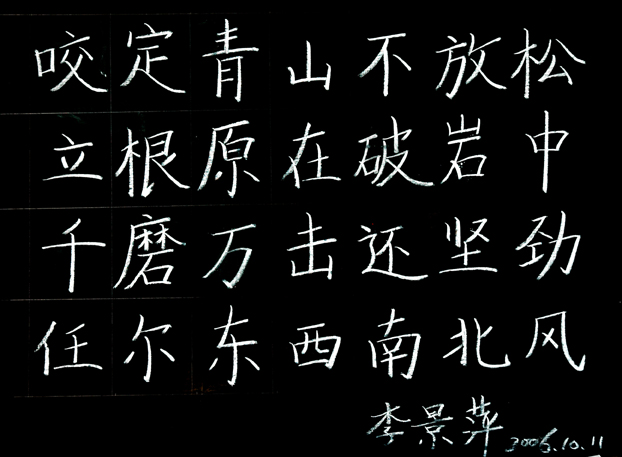 咬定青山不放松
立根原在破岩中
千磨万击还坚劲
任尔东西南北风
李景萍 2006.10.11